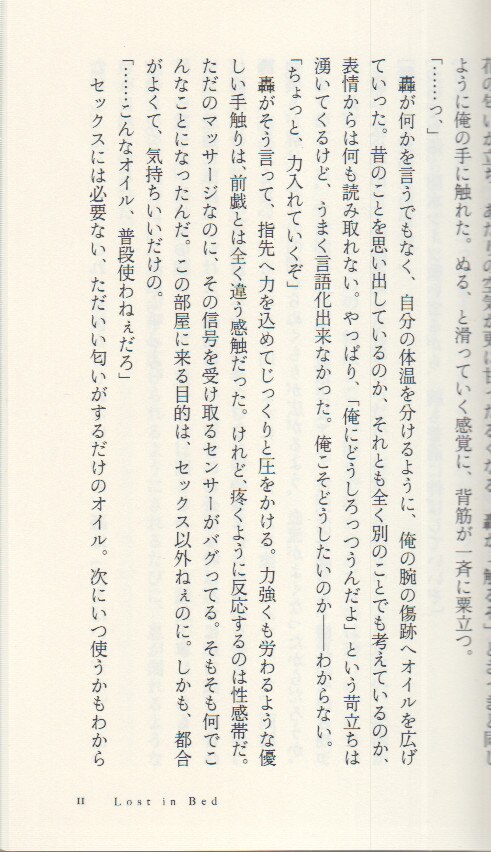 ように俺の手に触れた。ぬる、と滑っていく感覚に、背筋が一斉に粟立つ。
「……っ、」
轟が何かを言うでもなく、自分の体温を分けるように、俺の腕の傷跡へオイルを広げ
ていった。昔のことを思い出しているのか、それとも全く別のことでも考えているのか、
表情からは何も読み取れない。やっぱり、「俺にどうしろっつうんだよ」という苛立ちは
湧いてくるけど、うまく言語化出来なかった。俺こそどうしたいのか――わからない。
「ちょっと、力入れていくぞ」
轟がそう言って、指先へ力を込めてじっくりと圧をかける。力強くも労わるような優
しい手触りは、前戯とは全く違う感触だった。けれど、疼くように反応するのは性感帯だ。
ただのマッサージなのに、その信号を受け取るセンサーがバグってる。そもそも何でこ
んなことになったんだ。この部屋に来る目的は、セックス以外ねぇのに。しかも、都合
がよくて、気持ちいいだけの。
「……こんなオイル、普段使わねぇだろ」
セックスには必要ない、ただいい匂いがするだけのオイル。次にいつ使うかもわから
11 Lost in Bed